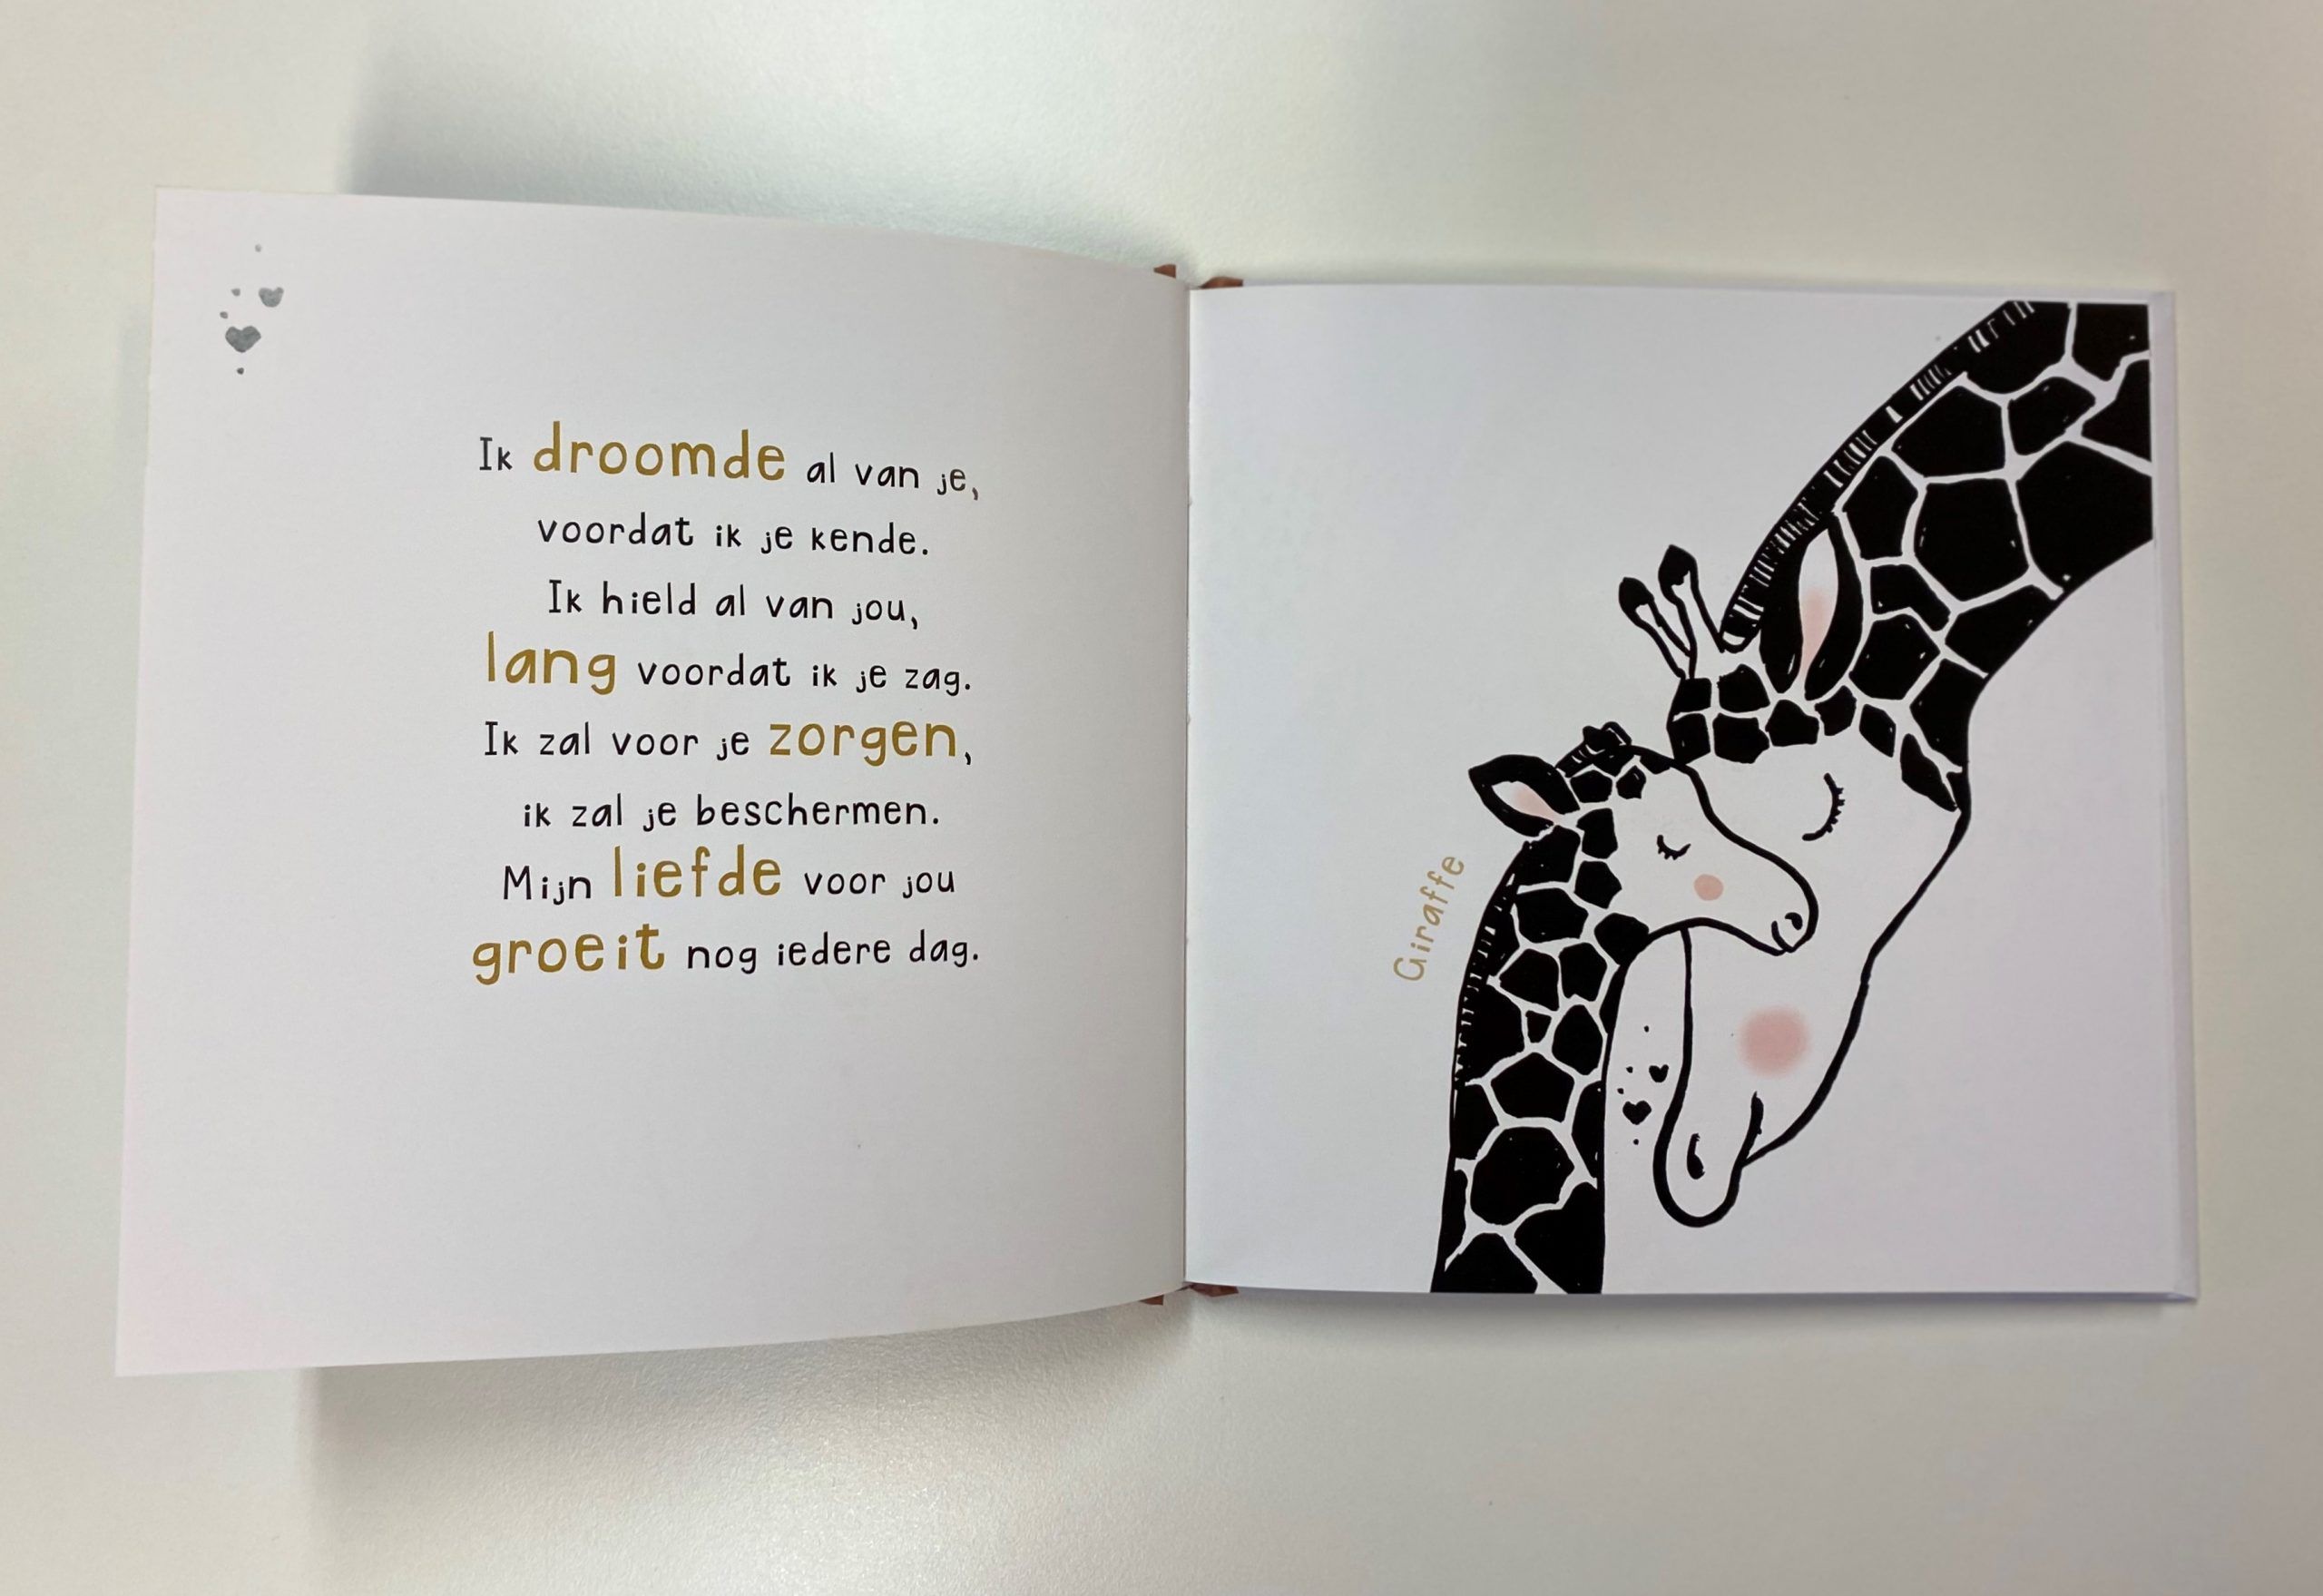 Ik droomde al van je,
voordat ik je kende.
Ik hield al van jou,
lang voordat ik je zag.
Ik zal voor je zorgen,
ik zal je beschermen.
Mijn liefde voor jou
groeit nog iedere dag.
Giraffe